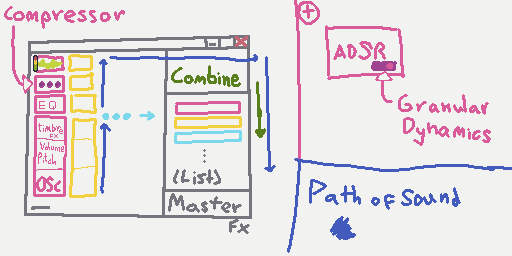 Compressor
Combine
EQ
timbre
FX
Volume
Pitch
OSC
(List)
Master
FX
ADSR
Granular
Dynamics
Path of Sound